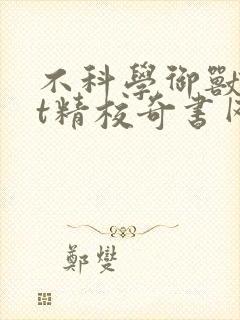 不科學御獸
t精校奇書网
鄭燮